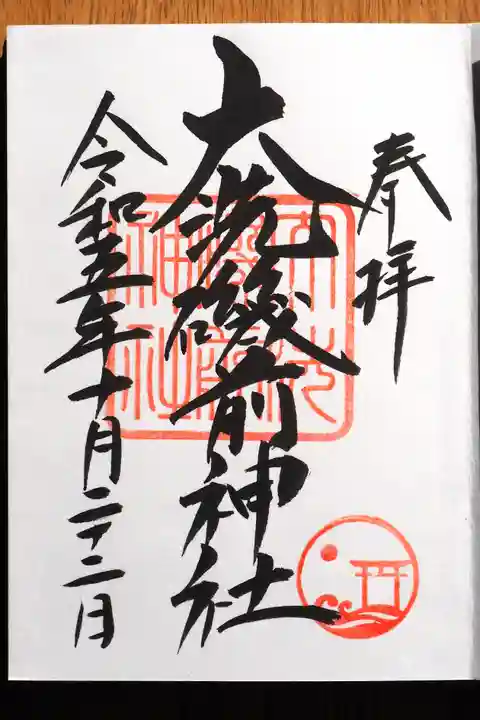 奉拝
大洗磯前神社
令和五年十月二十二日
大洗
磯前
神社